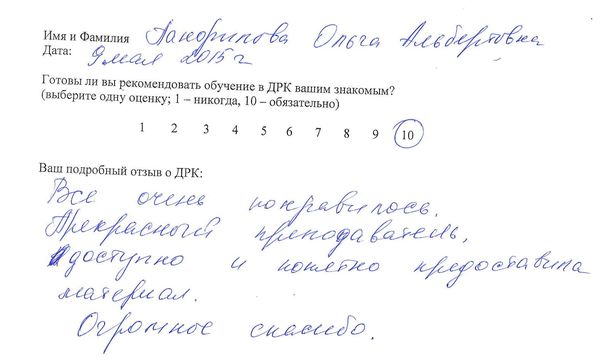 Имя и Фамилия Панфилова Ольга Альбертовна
Дата: 9 мая 2015 г
Готовы ли вы рекомендовать обучение в ДРК вашим знакомым?
(выберите одну оценку; 1 – никогда, 10 – обязательно)
1 2 3 4 5 6 7 8 9 10
Ваш подробный отзыв о ДРК:
Все очень понравилось.
Прекрасный преподаватель,
доступно и понятно предоставила
материал.
Огромное спасибо.